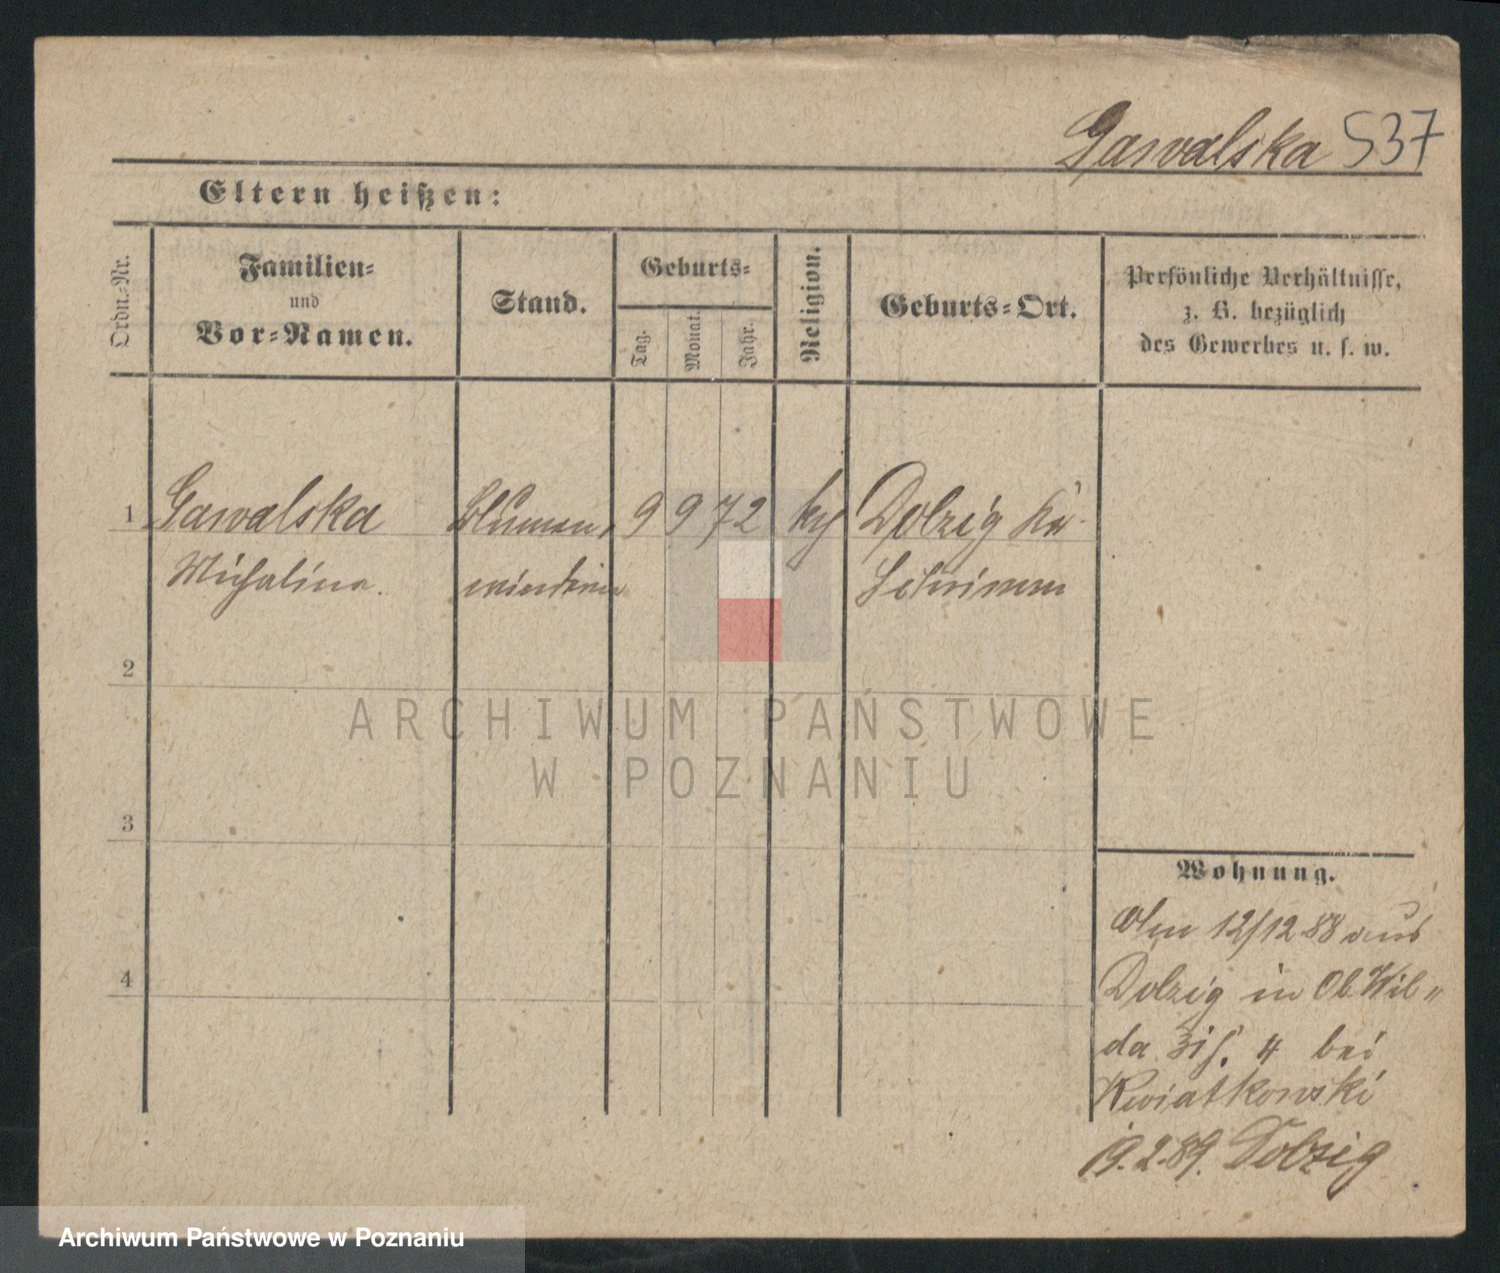 Gawalska 537
Eltern heißen:
Ordn.-Nr.
Familien-
und
Vor-Namen.
Stand.
Geburts-
Tag.
Monat.
Jahr.
Religion.
Geburts-Ort.
Persönliche Verhältnisse,
z. B. bezüglich
des Gewerbes u. s. w.
1 Gawalska Blumen, 9 9 72 Dolzig Kr.
Michalina. Schrimm
2
3
4
Wohnung.
12/12 88 aus
Dolzig in Ob Wil-
da 4 bei
Kwiatkowski
19.2.89. Dolzig
ARCHIWUM PAŃSTWOWE
W POZNANIU
Archiwum Państwowe w Poznaniu